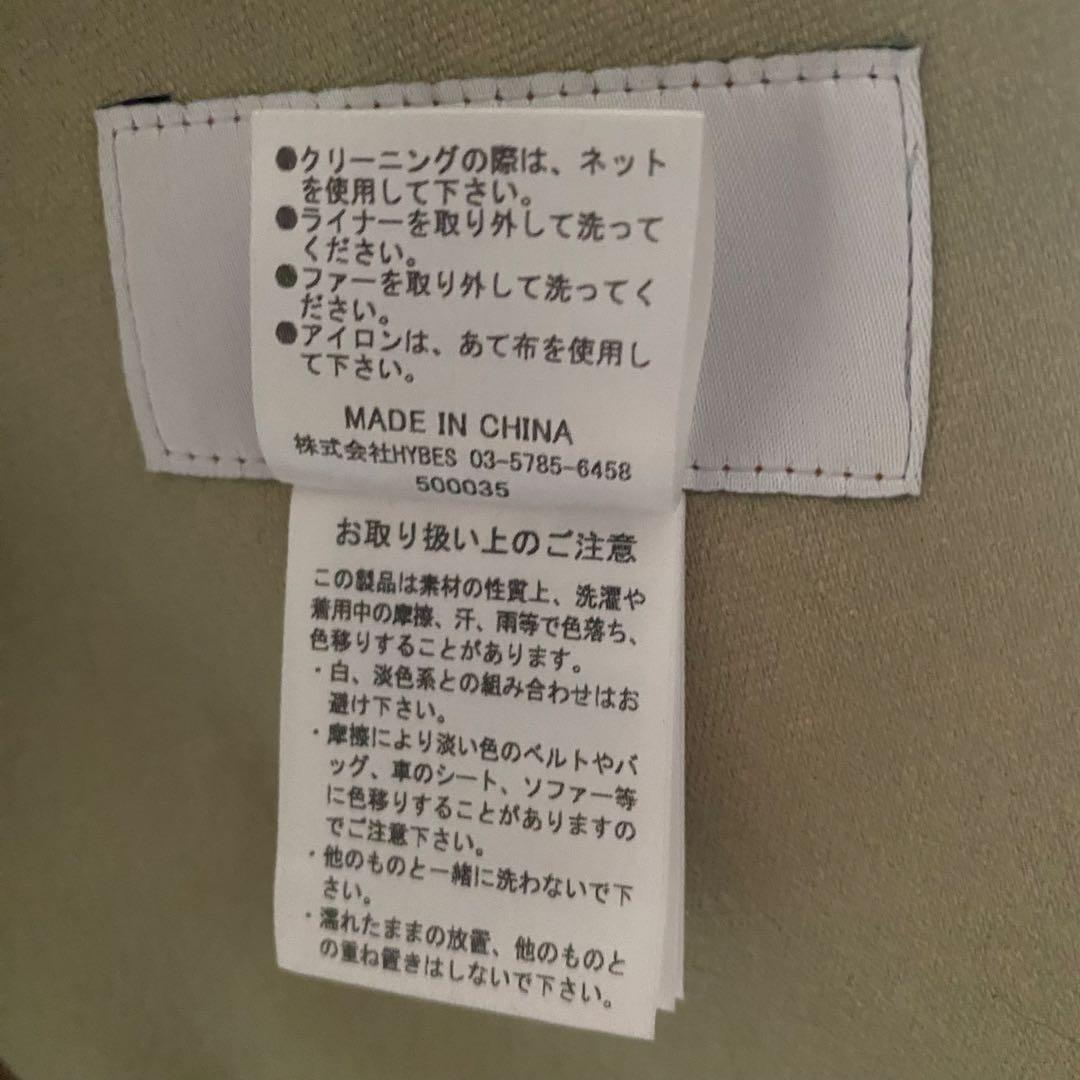 ●クリーニングの際は、ネット
を使用して下さい。
●ライナーを取り外して洗って
ください。
●ファーを取り外して洗ってく
ださい。
●アイロンは、あて布を使用し
て下さい。
MADE IN CHINA
株式会社HYBES 03-5785-6458
500035
お取り扱い上のご注意
この製品は素材の性質上、洗濯や
着用中の摩擦、汗、雨等で色落ち、
色移りすることがあります。
・白、淡色系との組み合わせはお
避け下さい。
・摩擦により淡い色のベルトやバ
ッグ、車のシート、ソファー等
に色移りすることがありますの
でご注意下さい。
・他のものと一緒に洗わないで下
さい。
・濡れたままの放置、他のものと
の重ね置きはしないで下さい。